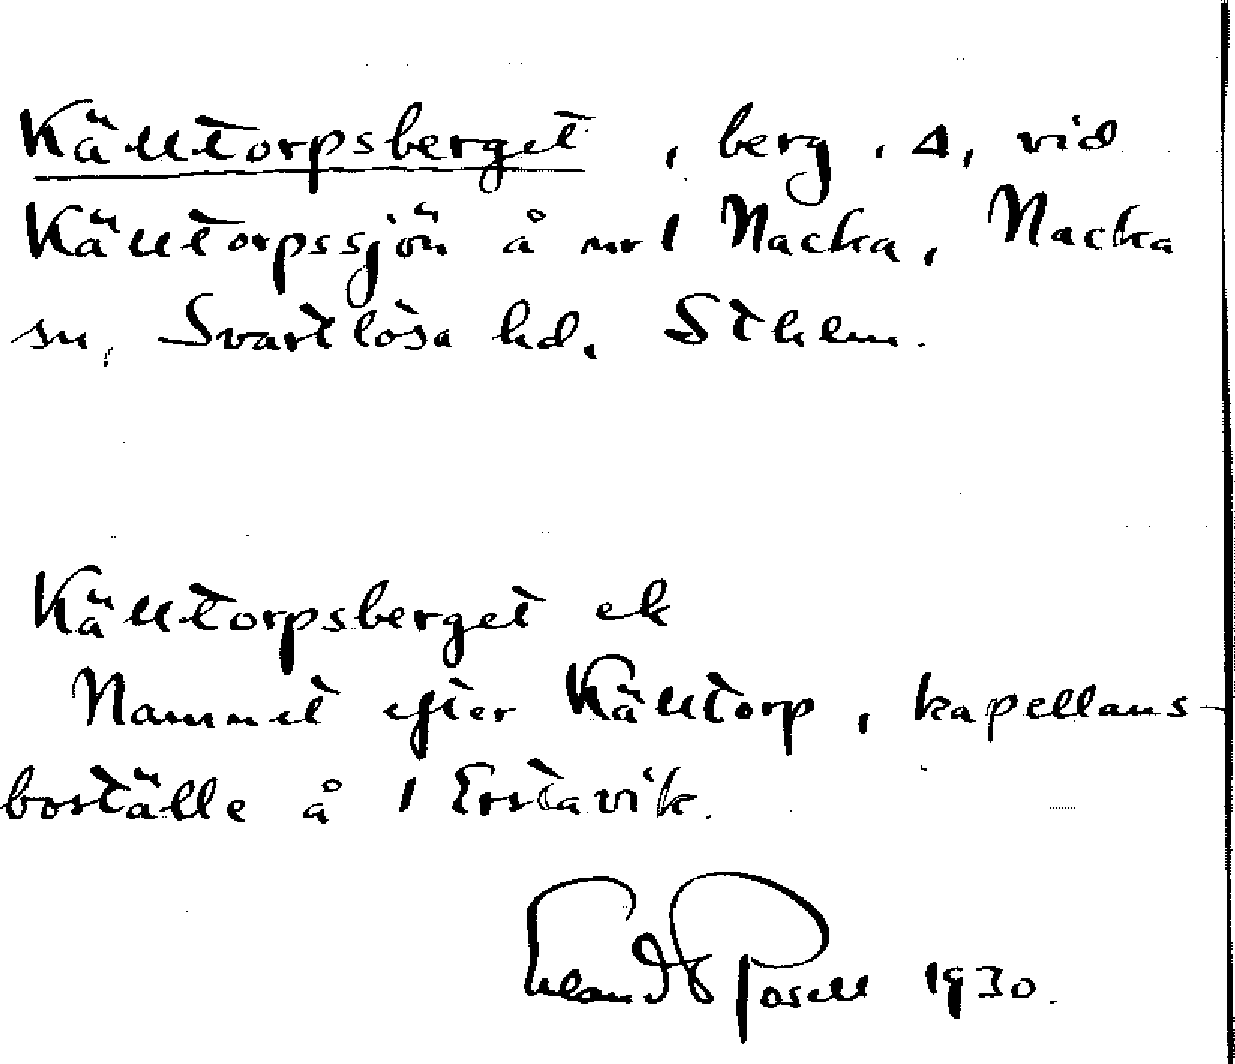 Källtorpsberget, berg, 4, vid
Källtorpssjön å nr 1 Nacka, Nacka
sn, Svartlösa hd, Sthlm.
Källtorpsberget ek
Namnet efter Källtorp, kapellans-
boställe å 1 Erstavik.
Erland Rosell 1930.